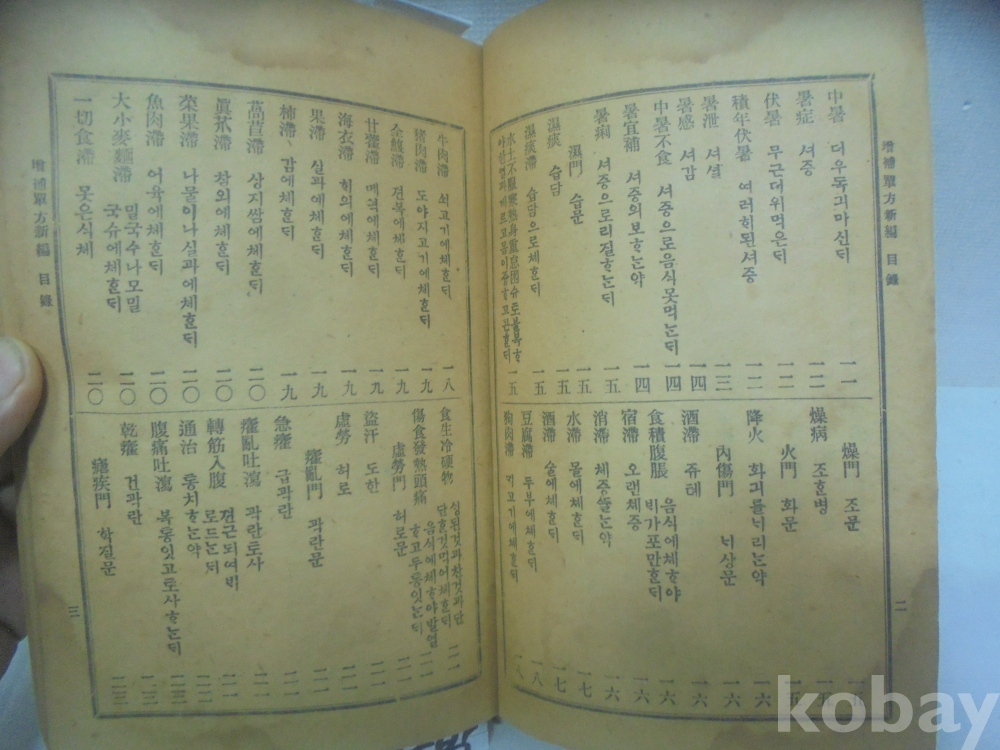 增補單方新編 目錄
中暑 더우독긔마신듸 一一
暑症 셔증 一二
伏暑 무근더위먹은듸 一二
積年伏暑 여러희된셔증 一三
暑泄 셔셜 一四
暑感 셔감
中暑不食 셔증으로음식못먹는듸 一四
暑宜補 셔증의보ᄒᆞ는약 一四
暑痢 셔증으로리질ᄒᆞ는듸 一五
濕門 습문 一五
濕痰 습담 一五
濕痰滯 습담으로체ᄒᆞᆫ듸 一五
一五
燥門 조문
燥病 조ᄒᆞᆫ병
火門 화문
降火 화긔를ᄂᆡ리는약 一六
內傷門 ᄂᆡ상문
酒滯 쥬체 一六
食積腹脹 음식에체ᄒᆞ야 비가포만ᄒᆞᆫ듸 一六
宿滯 오랜체증 一六
消滯 체증쓸는약 一六
水滯 물에체ᄒᆞᆫ듸 一七
酒滯 술에체ᄒᆞᆫ듸 一七
豆腐滯 두부에체ᄒᆞᆫ듸 一八
狗肉滯 ᄀᆡ고기에체ᄒᆞᆫ듸 一八
二
牛肉滯 쇠고기에체ᄒᆞᆫ듸 一八
猪肉滯 도야지고기에체ᄒᆞᆫ듸 一九
全鰒滯 젼복에체ᄒᆞᆫ듸 一九
甘藿滯 메역에체ᄒᆞᆫ듸 一九
海衣滯 ᄒᆡ의에체ᄒᆞᆫ듸 一九
果滯 실과에체ᄒᆞᆫ듸 一九
柿滯 감에체ᄒᆞᆫ듸 一九
萵苣滯 상지쌈에체ᄒᆞᆫ듸 二〇
眞瓜滯 참외에체ᄒᆞᆫ듸 二〇
菜果滯 나물이나실과에체ᄒᆞᆫ듸 二〇
魚肉滯 어육에체ᄒᆞᆫ듸 二〇
大小麥麵滯 밀국수나모밀 국슈에체ᄒᆞᆫ듸 二〇
一切食滯 못은식체 二〇
食生冷硬物 셩된것과찬것과단 단ᄒᆞᆫ것먹어체ᄒᆞᆫ듸 二一
傷食發熱頭痛 음식에체ᄒᆞ야발열 ᄒᆞ고두통잇는듸 二一
虛勞門 허로문 二一
盜汗 도한 二一
虛勞 허로 二一
癨亂門 곽란문 二一
急癨 급곽란 二一
癨亂吐瀉 곽란토사 二一
轉筋入腹 젼근되여ᄇᆡ 로드는듸 二二
通治 통치ᄒᆞ는약 二二
腹痛吐瀉 복통잇고토사ᄒᆞ는듸 二二
乾癨 건곽란 二三
瘧疾門 학질문 二三
增補單方新編 目錄
三
kobay